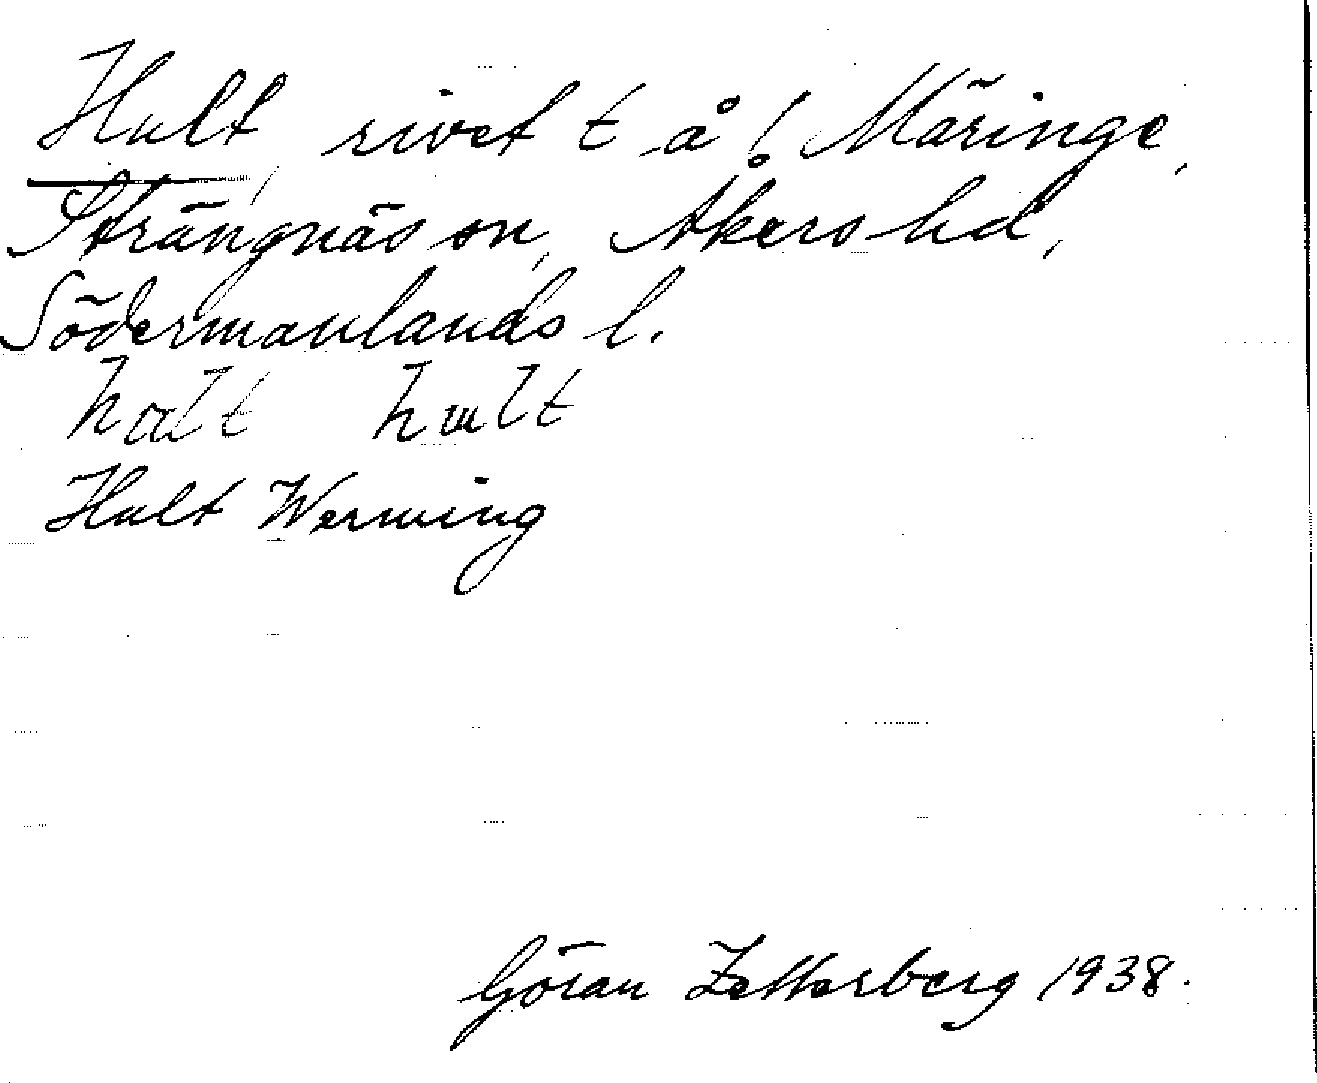 Hult, rivet t å/ Märinge,
Strängnäs sn, Åkers hd,
Södermanlands l.
hult
Hult Werming
Göran Zetterberg 1938.